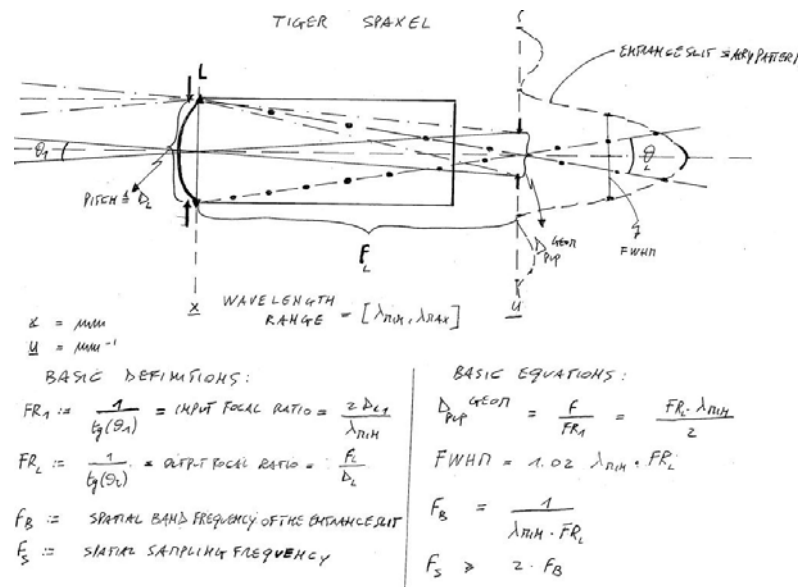 TIGER SPAXEL
L
ENTRANCE SLIT ≡ AIRY PATTERN
θ₁
θ_L
PITCH ≜ D_L
D_PUP^GEOM
FWHM
F_L
x
u
WAVELENGTH
RANGE = [λ_MIN, λ_MAX]
x = mm
u = mm⁻¹
BASIC DEFINITIONS:
FR₁ := 1 / tg(θ₁) = INPUT FOCAL RATIO = 2 D_L1 / λ_MIN
FR_L := 1 / tg(θ_L) = OUTPUT FOCAL RATIO = F_L / D_L
F_B := SPATIAL BAND FREQUENCY OF THE ENTRANCE SLIT
F_S := SPATIAL SAMPLING FREQUENCY
BASIC EQUATIONS:
D_PUP^GEOM = F / FR₁ = FR_L · λ_MIN / 2
FWHM = 1.02 λ_MIN · FR_L
F_B = 1 / λ_MIN · FR_L
F_S ≥ 2 · F_B